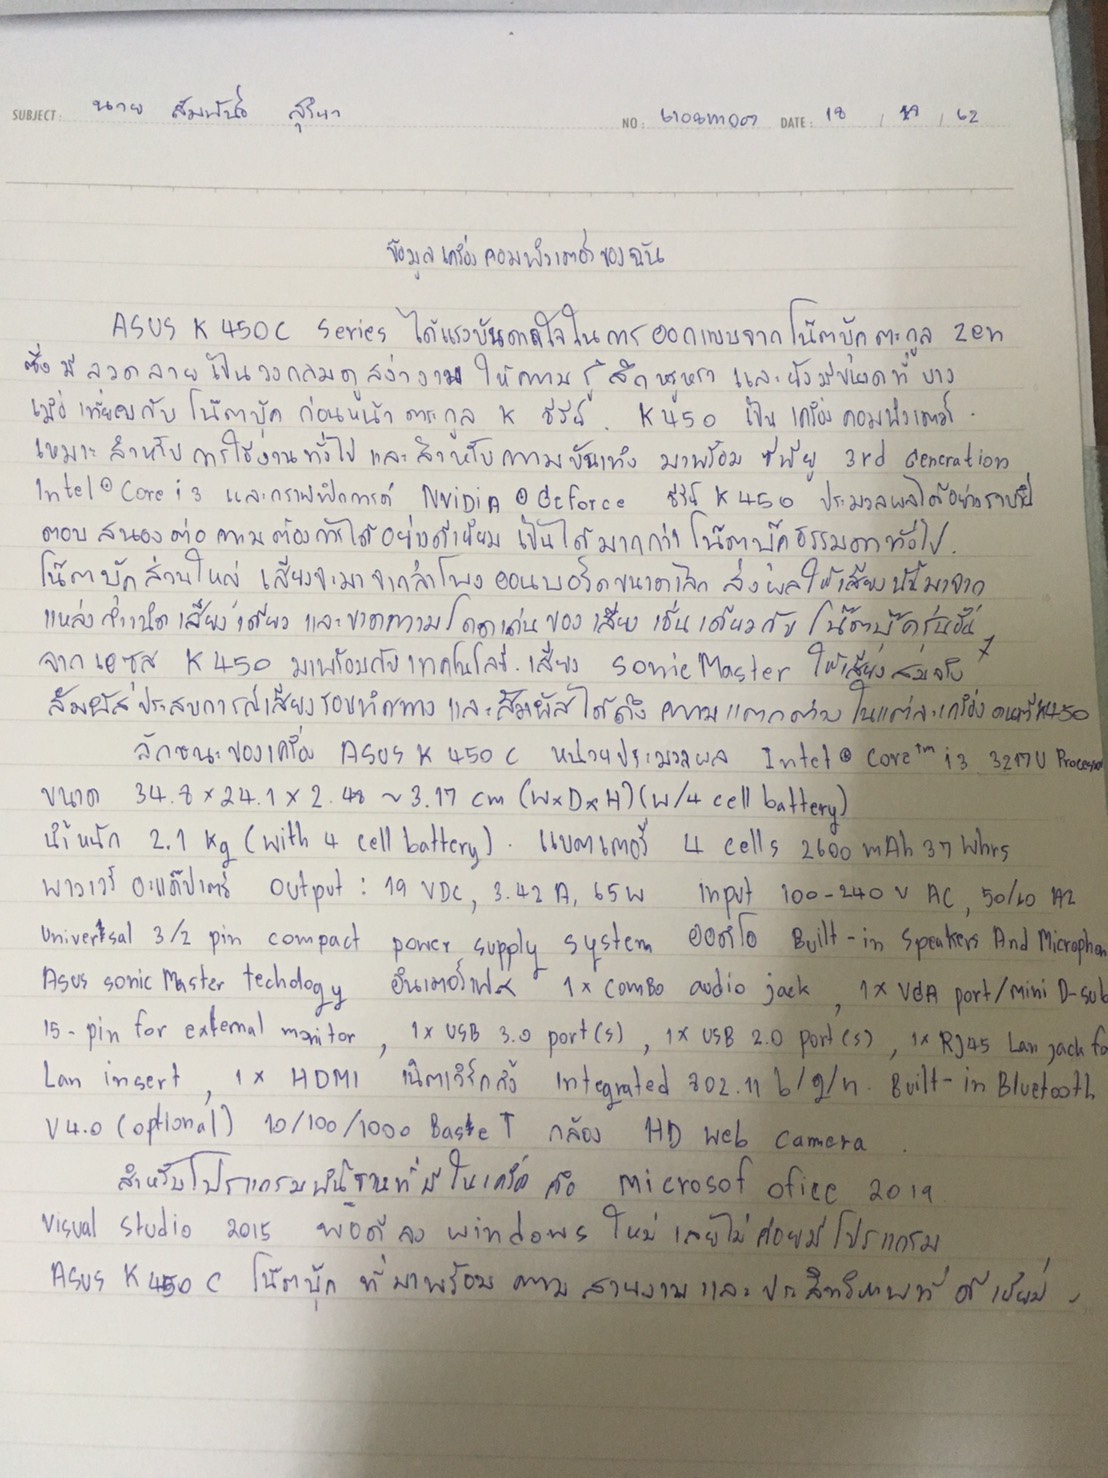 SUBJECT: นาย สัมพันธ์ สุริยา
NO: DATE: 18 / / 62
ข้อมูลเครื่องคอมพิวเตอร์ของฉัน
ASUS K 450C Series ได้แรงบันดาลใจในการออกแบบจากโน๊ตบุ๊คตะกูล Zen
ซึ่งมีลวดลายเป็นวงกลมดูสง่างาม ให้ความรู้สึกหรูหรา และยังมีขนาดที่บาง
เมื่อเทียบกับ โน๊ตบุ๊ค ก่อนหน้า ตระกูล K ซีรีย์. K450 เป็น เครื่องคอมพิวเตอร์.
เหมาะสำหรับการใช้งานทั่วไป และสำหรับความบันเทิง มาพร้อม ซีพียู 3rd Generation
Intel® Core i3 และกราฟฟิกการด์ NVIDIA ® Geforce ซีรีย์ K450 ประมวลผลได้อย่างราบรื่น
ตอบสนองต่อความต้องการได้อย่างดีเยี่ยม เป็นได้มากกว่า โน๊ตบุ๊คธรรมดาทั่วไป.
โน๊ตบุ๊คส่วนใหญ่ เสียงจะมาจากลำโพงออนบอร์ดขนาดเล็ก ส่งผลให้เสียงนั้นมาจาก
แหล่งกำเนิดเสียงเดียว และขาดความโดดเด่นของเสียง เช่นเดียวกับ โน๊ตบุ๊ครุ่นอื่นๆ
จากเอซุส K450 มาพร้อมกับเทคโนโลยี เสียง SonicMaster ให้เสียงสมจริง
สัมผัสประสบการณ์เสียงรอบทิศทาง และสัมผัสได้ถึง ความแตกต่างในแต่ละเครื่องดนตรี K450
ลักษณะของเครื่อง ASUS K 450 C หน่วยประมวลผล Intel® Core™ i3 3217U Processor
ขนาด 34.8 x 24.1 x 2.48 ~ 3.17 cm (WxDxH)(w/4 cell battery)
น้ำหนัก 2.1 kg (with 4 cell battery). แบตเตอรี่ 4 cells 2600 mAh 37 Whrs
พาวเวอร์ อะแด๊ปเตอร์ Output : 19 VDC, 3.42 A, 65 W Input 100-240 V AC, 50/60 HZ
Universal 3/2 pin compact power supply system ออดิโอ Built-in Speakers And Microphon
Asus sonic Master techology อินเตอร์เฟส 1x comBo audio jack , 1x VGA port/Mini D-sub
15-pin for external monitor , 1x USB 3.0 port(s) , 1x USB 2.0 port(s) , 1x RJ45 Lan jack fo
Lan insert , 1 x HDMI เน็ตเวิร์กกิ้ง Integrated 802.11 b/g/n. Built-in Bluetooth
V4.0 (optional) 10/100/1000 Base T กล้อง HD web camera .
สำหรับโปรแกรมพื้นฐานที่มีในเครื่อง คือ microsof ofiec 2019
Visual Studio 2015 พอดีลง windows ใหม่ เลยไม่ค่อยมีโปรแกรม
ASUS K 450 C โน๊ตบุ๊ค ที่มาพร้อม ความสวยงามและประสิทธิภาพที่ ดีเยี่ยม.